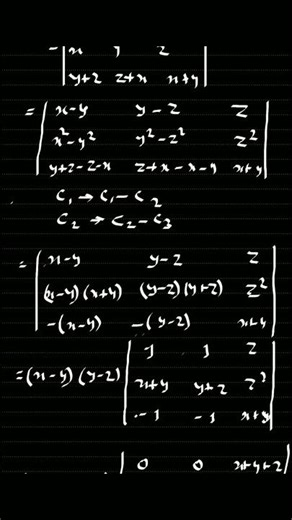 - | x y z |
| y+z z+x x+y |
= | x-y y-z z |
| x²-y² y²-z² z² |
| y+z-z-x z+x-x-y x+y |
C₁ → C₁-C₂
C₂ → C₂-C₃
= | x-y y-z z |
| (x-y)(x+y) (y-z)(y+z) z² |
| -(x-y) -(y-z) x+y |
= (x-y)(y-z) | 1 1 z |
| x+y y+z z² |
| -1 -1 x+y |
| 0 0 x+y+z |